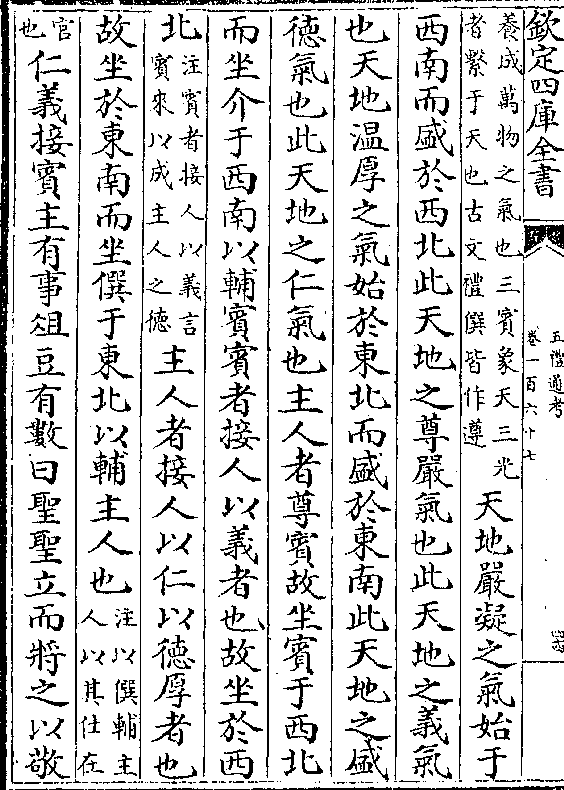 欽定四庫全書
五禮通考
卷一百六十七
養成萬物之氣也三賓象天三光
者繫于天也古文禮僎皆作遵
天地嚴凝之氣始于
西南而盛於西北此天地之尊嚴氣也此天地之義氣
也天地温厚之氣始於東北而盛於東南此天地之盛
德氣也此天地之仁氣也主人者尊賓故坐賓于西北
而坐介于西南以輔賓賓者接人以義者也故坐於西
北
注賓者接人以義言
賓來以成主人之德
主人者接人以仁以德厚者也
故坐於東南而坐僎于東北以輔主人也
注以僎輔主
人以其仕在
官
也
仁義接賓主有事俎豆有數曰聖聖立而將之以敬